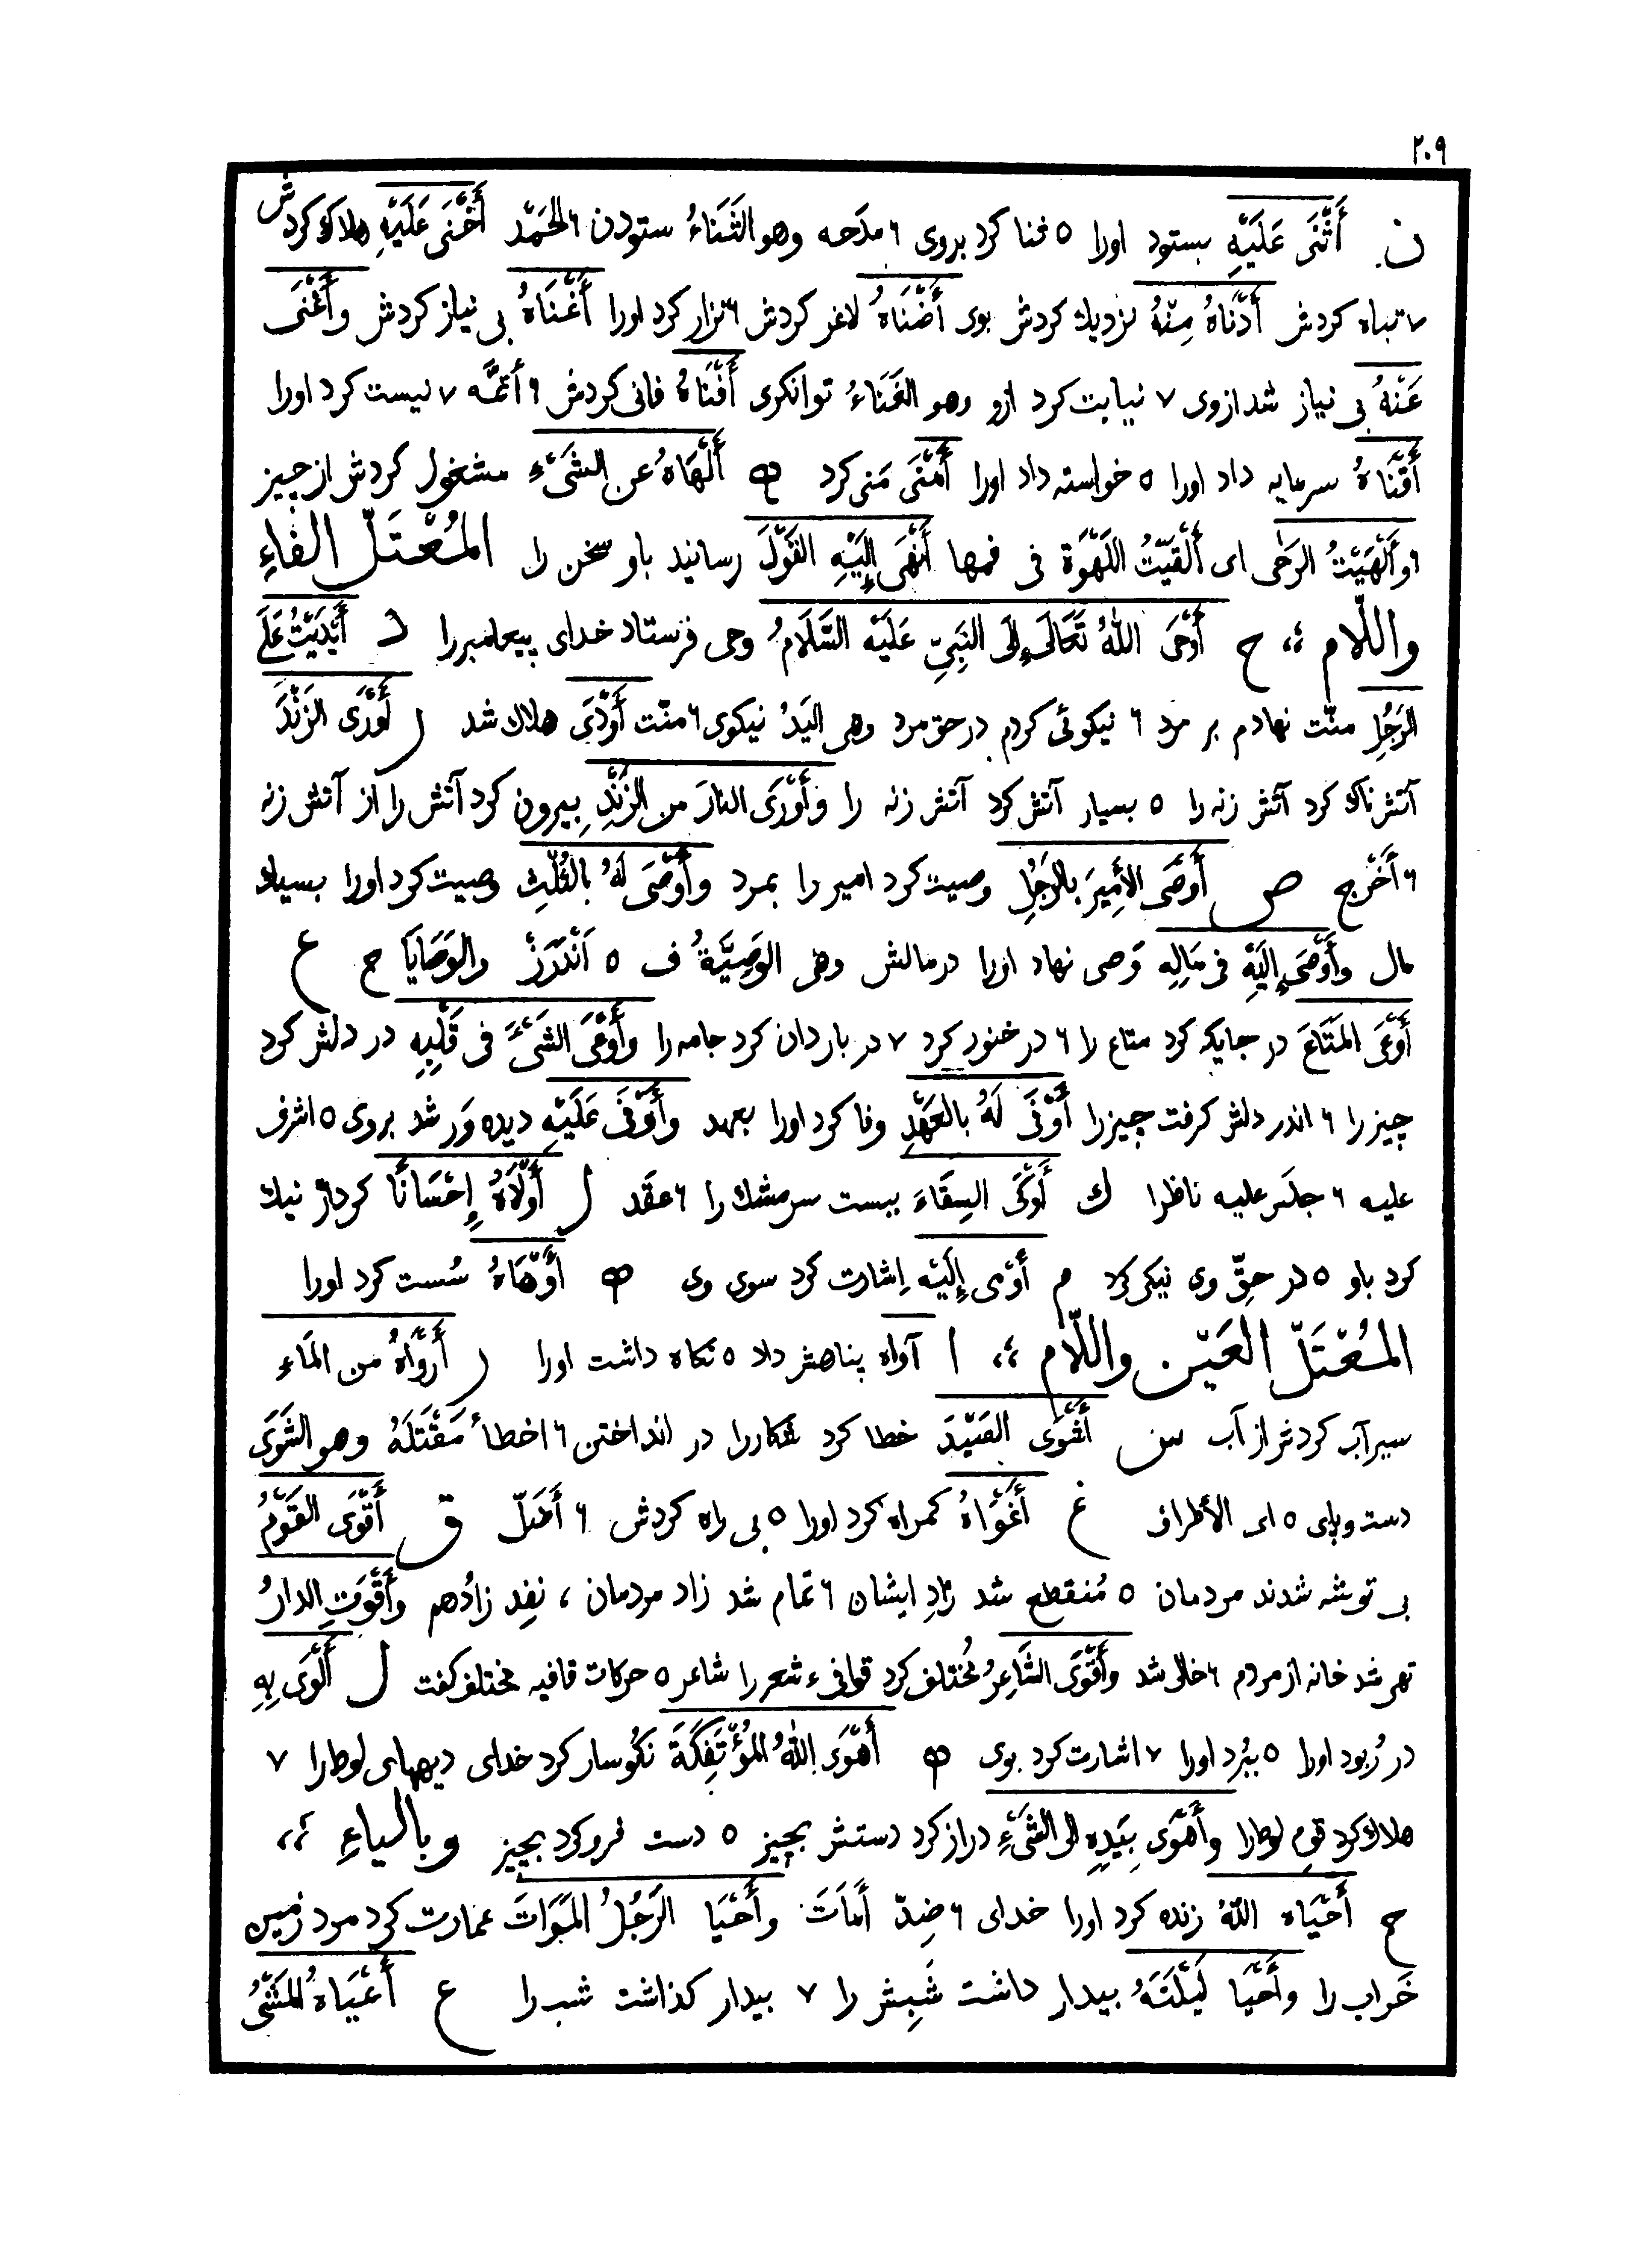 ٢٠٩
ن أَثْنَى عَلَيْهِ بستود اورا ٥ ثنا کرد بروی ٦ مدَحه وهو الثَنَاءُ ستودن ٦ الحَمْد أَخْنَى عَلَيْهِ هلاک کردش
٧ تباه کردش أَدْنَاهُ مِنْهُ نزدیك کردش بوی أَضْنَاهُ لاغر کردش ٦ نزار کرد اورا أَغْنَاهُ بی نیاز کردش وأَغْنَى
عَنْهُ بی نیاز شد ازوی ٧ نیابت کرد ازو وهو الغَنَاءُ توانکری أَفْنَاهُ فانی کردش ٦ أتمَّه ٧ نیست کرد اورا
أَقْنَاهُ سرمایه داد اورا ٥ خواسته داد اورا أَمْنَى مَنی کرد ه أَلْهَاهُ عن الشَیْءِ مشغول کردش از چیز
وأَلْهَیْتُ الرَحَى ای أَلْقَیْتُ اللَهْوَة فی فمها أَنْهَى إِلَیْهِ القَوْلَ رسانید باو سخن را المُعْتَلّ الفاءِ
واللّام ح أَوْحَى اللهُ تَعَالَى إِلَى النَبِیّ عَلَیْه السَّلَامُ وحی فرستاد خدای پیغامبررا د أَیْدَیْتُ عَلَى
الرَجُلِ منّت نهادم بر مرد ٦ نیکوئی کردم در حق مرد وهی الیَدُ نیکوی ٦ منّت أَوْدَى هلاك شد ر أَوْرَى الزَنْدَ
آتش ناك کرد آتش زنه را ٥ بسیار آتش کرد آتش زنه را وأَوْرَى النارَ من الزَنْدِ بیرون کرد آتش را از آتش زنه
٦ أَخْرج ص أَوصَى الأَمِیرَ بالرَجُلِ وصیت کرد امیر را بمرد وأَوْصَى لَهُ بالثُلْثِ وصیت کرد اورا بسیك
مال وأَوْصَى إِلَیْهِ فی مَالِهِ وَصی نهاد اورا در مالش وهی الوَصِیَّةُ ف ٥ اَنْدَرْزْ والوَصَایَا ج ع
أَوْعَى المَتَاعَ در جایکه کرد متاع را ٦ در خنور کرد ٧ در باردان کرد جامه را وأَوْعَى الشَیْءَ فی قَلْبِهِ در دلش کرد
چیز را ٦ اندر دلش کرفت چیزرا أَوْفَى لَهُ بالعَهْدِ وفا کرد اورا بعهد وأَوْفَى عَلَیْهِ دیده وَر شد بروی ٥ اشرف
علیه ٦ جلس علیه ناظرا ك أَوْكَى السِقَاءَ ببست سر مشك را ٦ عقَد ل أَوْلَاهُ إِحْسَانًا کردار نیك
کرد باو ٥ در حقّ وی نیکی کرد م أَوْمى إِلَیْهِ إشارت کرد سوی وی ه أَوْهَاهُ سُست کرد اورا
المُعْتَلّ العَیْن واللّام ا آواه پناهش داد ٥ نکاه داشت اورا ر أَرْوَاهُ من المَاءِ
سیرآب کردش از آب ش أَشْوَى الصَیْدَ خطا کرد شکاررا در انداختن ٦ اخطأ مَقْتَلَهُ وهو الشَوَى
دست وپای ٥ ای الأطراف غ أَغْوَاهُ کمراه کرد اورا ٥ بی راه کردش ٦ أَضَلّ ق أَقْوَى القَوْمُ
بی توشه شدند مردمان ٥ مُنقطع شد زادِ ایشان ٦ تمام شد زاد مردمان ، نفِد زادُهم وأَقْوَتِ الدارُ
تهی شد خانه از مردم ٦ خالی شد وأَقْوَى الشَاعِرُ مُختلف کرد قوافیء شعر را شاعر ٥ حرکات قافیه مختلف کفت ل أَلْوَى بِهِ
در رُبود اورا ٥ ببُرد اورا ٧ اشارت کرد بوی ه أَهْوَى اللهُ المُؤْتَفِكَةَ نکُوسار کرد خدای دیههای لوط را ٧
هلاك کرد قوم لوط را وأَهْوَى بِیَدِهِ إلى الشَیْءِ دراز کرد دستش بچیز ٥ دست فرو کرد بچیز وبالیاءِ
ح أَحْیَاه اللهُ زنده کرد اورا خدای ٦ ضِدّ أَمَاتَ وأَحْیَا الرَجُلُ المَوَاتَ عمارت کرد مرد زمین
خَراب را وأَحْیَا لَیْلَتَهُ بیدار داشت شَبِش را ٧ بیدار کذاشت شب را ع أَعْیَاهُ المَشْیُ